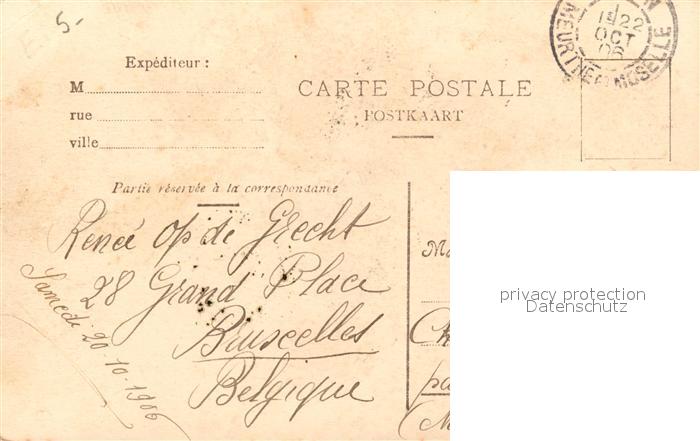 5-
Expéditeur :
M
rue
ville
CARTE POSTALE
POSTKAART
22
OCT
06
MEURTHE MOSELLE
Partie réservée à la correspondance
Renée Op de Grecht
28 Grand Place
Bruxelles
Belgique
Samedi 20.10.1906
privacy protection
Datenschutz